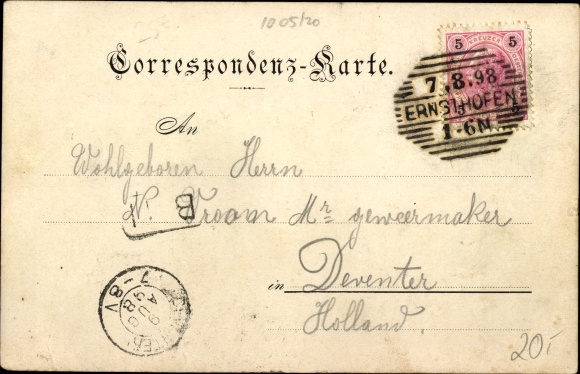 1005/20
5 KREUZER 5
Correspondenz-Karte.
7.8.98
ERNSTHOFEN
1-6N
An
Wohlgeboren Herrn
N. Vroom Mr geweermaker
B
in Deventer
Holland.
7-8V
9
AUG
98
20.-